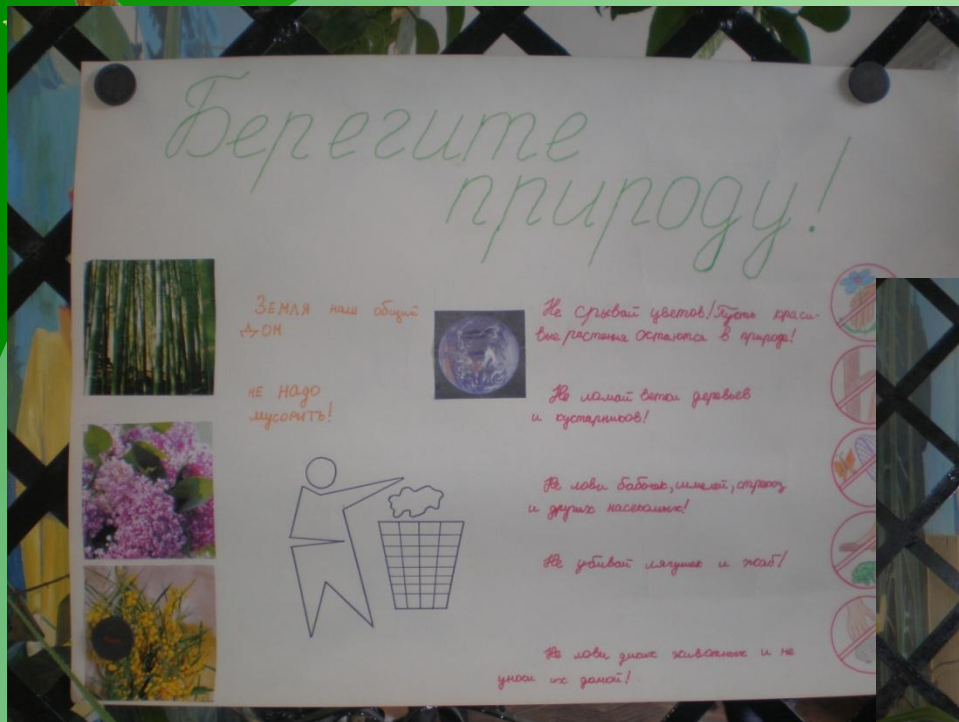 Берегите
природу!
Земля наш общий
дом
не надо
мусорить!
Не срывай цветов! Пусть краси-
вые растения остаются в природе!
Не ломай ветки деревьев
и кустарников!
Не лови бабочек, шмелей, стрекоз
и других насекомых!
Не убивай лягушек и жаб!
Не лови диких животных и не
уноси их домой!